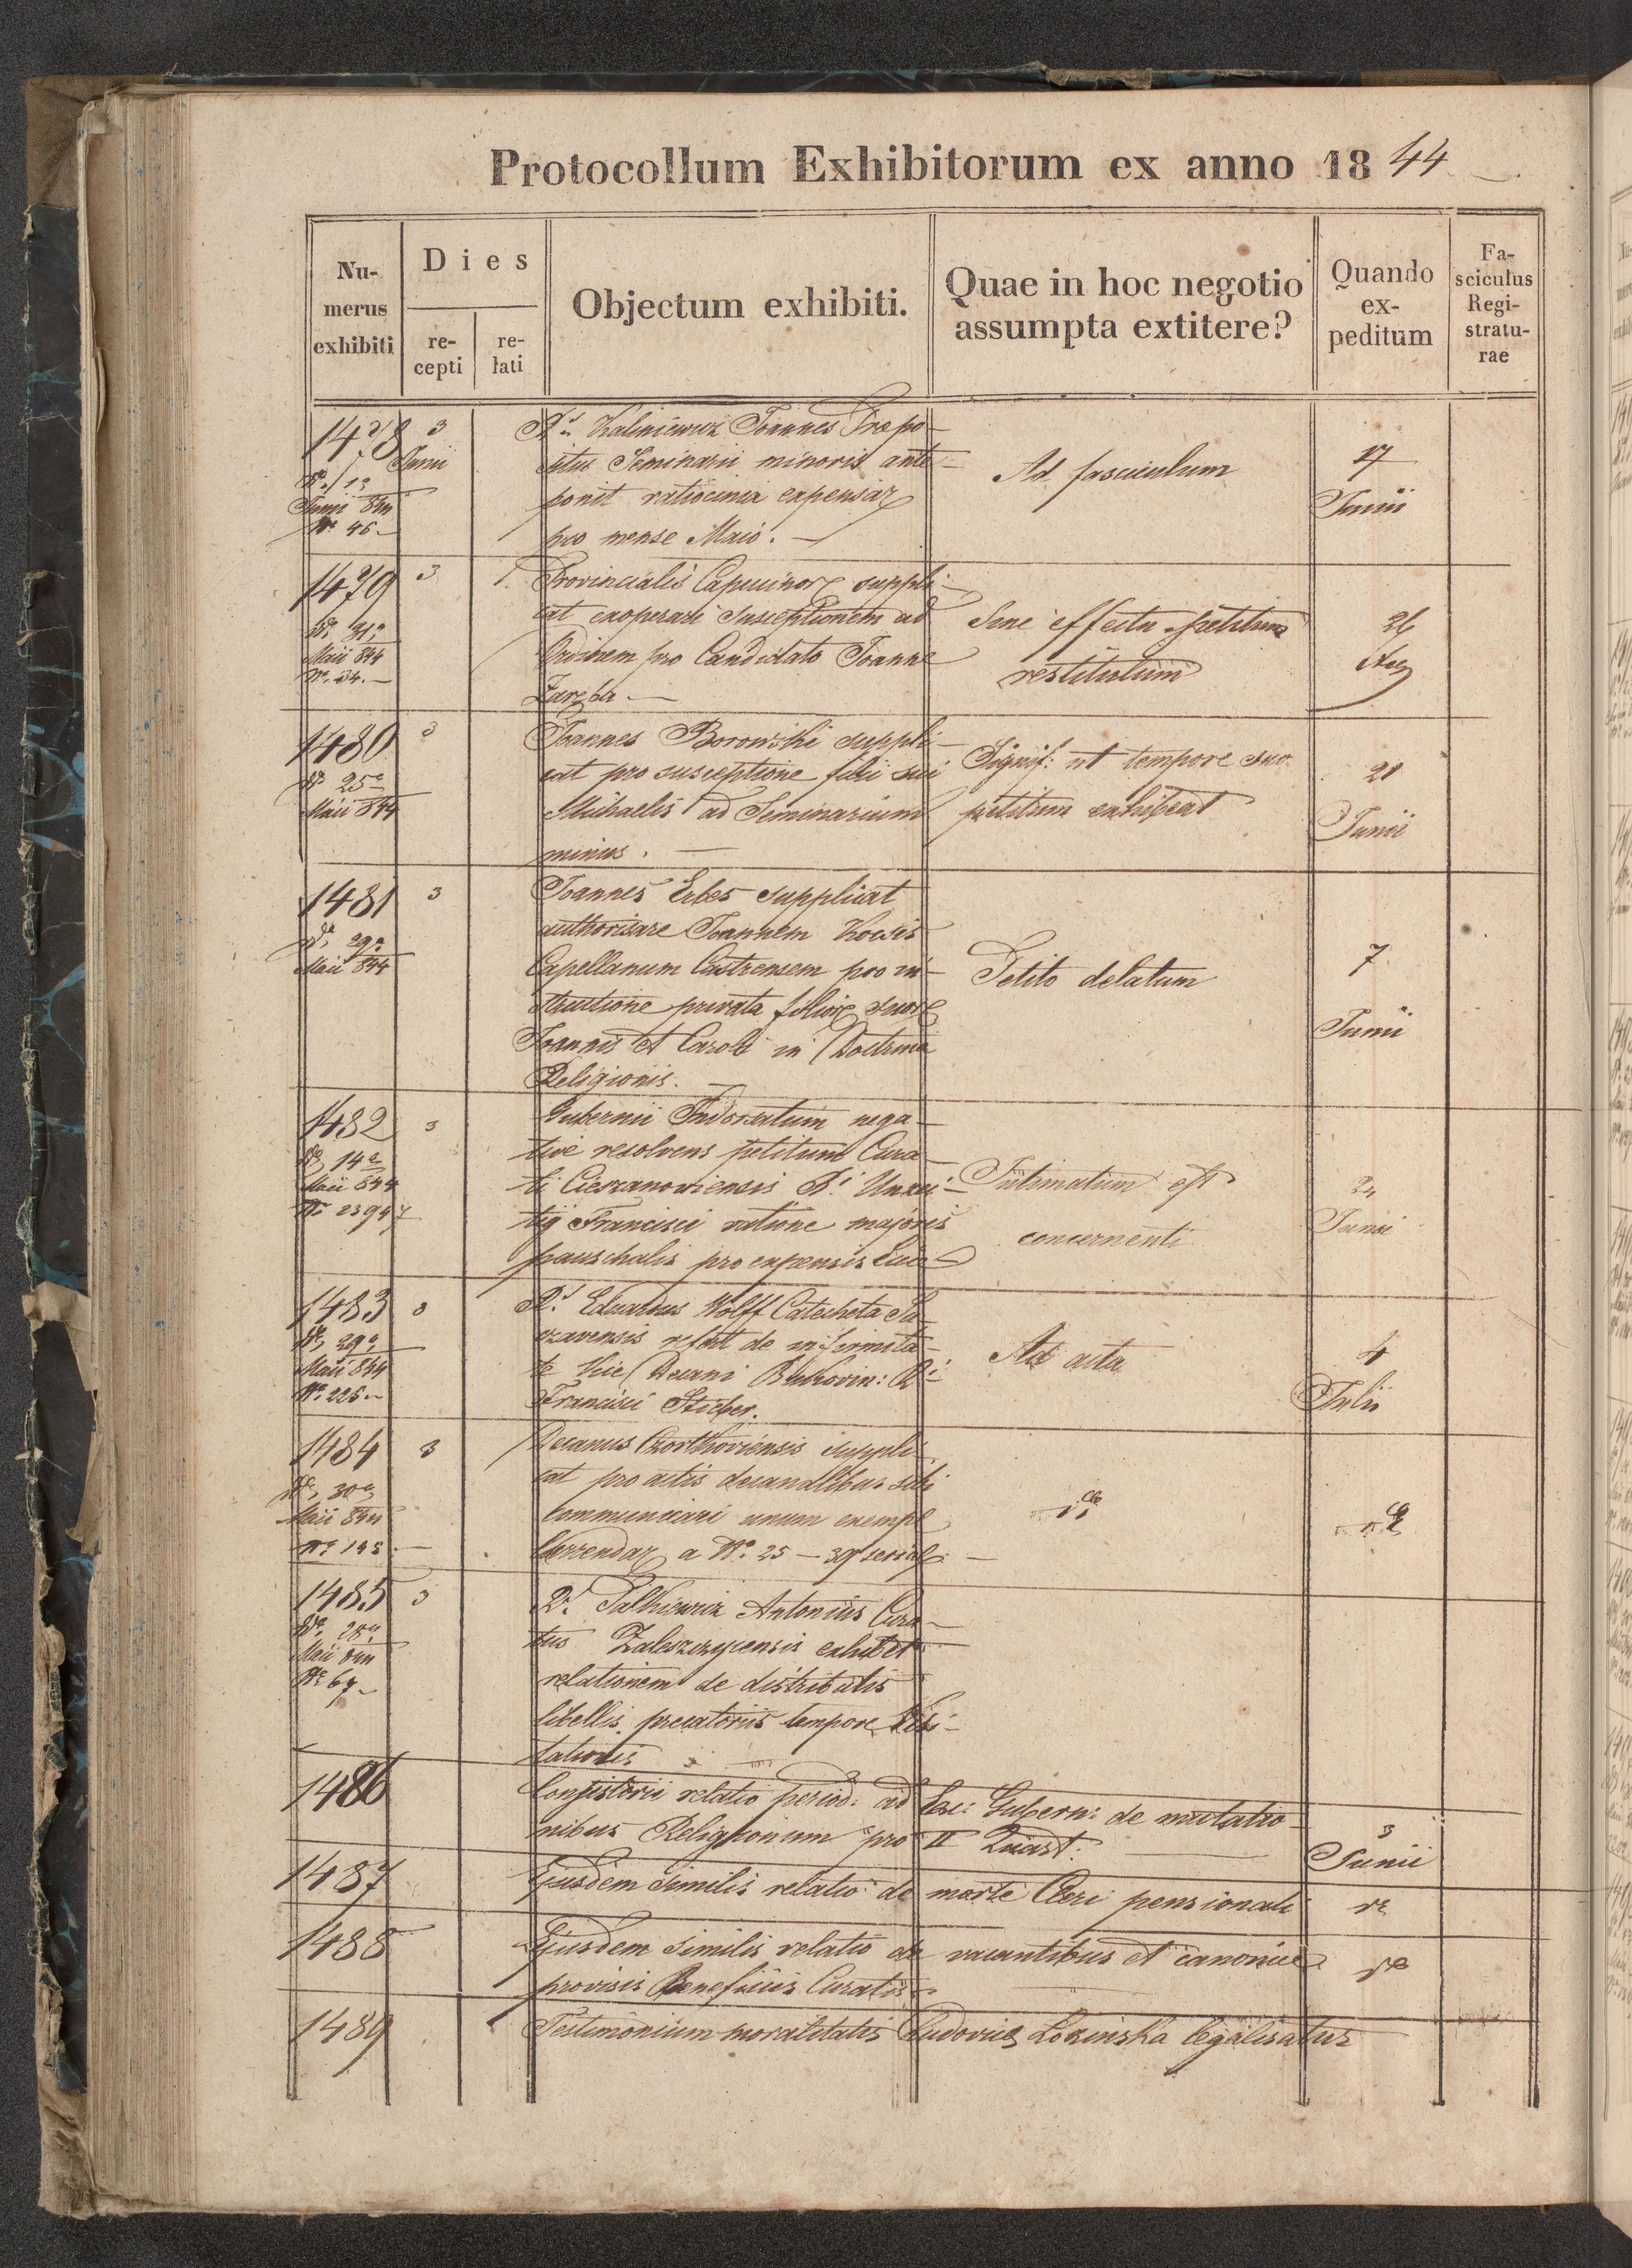 Protocollum Exhibitorum ex anno 1844
Nu-
merus
exhibiti
Dies
re-
cepti
re-
lati
Objectum exhibiti.
Quae in hoc negotio
assumpta extitere?
Quando
ex-
peditum
Fa-
sciculus
Regi-
stratu-
rae
1478
3
Junii
Junii 844
No 46
Kaliniewicz Joannes Præpo-
situs Seminarii minoris ante-
ponit ratiocinia expensar
pro mense Maio.
Ad fasciculum
17
Junii
1479
3
31
Maii 844
Provincialis Capucinor suppli-
cat exoperari susceptionem ad
Ordinem pro Candidato Joanne
Zaręba
Sine effectu petitum
restitutum
26
Aug
1480
3
25
Maii 844
Joannes Borowski suppli-
cat pro susceptione filii sui
Michaelis ad Seminarium
minus.
Signif: ut tempore suo
petitum exhibeat
21
Junii
1481
3
29
Maii 844
Joannes Erbes supplicat
authorisare Joannem
Capellanum Castrensem pro in-
structione privata filior suor
Joannis et Caroli in Doctrina
Religionis.
Petito delatum
7
Junii
1482
3
14
Maii 844
No 23947
Gubernii Indorsatum nega-
tive resolvens petitum Cura-
ti Cieszanoviensis
Francisci ratione majoris
pauschalis pro expensis
Intimatum est
concernenti
24
Junii
1483
3
29
Maii 844
No 226
Rd. Eduardus Wolff Catecheta
refert de infirmita-
te Vice Decani Bukovin:
Francisci Sticher.
Ad acta
4
Julii
1484
3
30
Maii 844
No 145
Decanus Czortkoviensis suppli-
cat pro actis decanalibus sibi
communicari unum exempl
Currendar a No 25 - 39
1485
3
28
Maii 844
No 67
Antonius Cura-
tus Zaleszczycensis exhibet
relationem de distributis
libellis precatoriis tempore Visi-
tationis
1486
Consistorii relatio period: ad Exc: Gubern: de mutatio-
nibus Religionum pro II Quart:
3
Junii
1487
Ejusdem similis relatio de morte Cleri pensionati
1488
Ejusdem similis relatio de vacantibus et canonice
provisis Beneficiis Curatis
1489
Testimonium moralitatis Ludovica Łozinska legalisatur